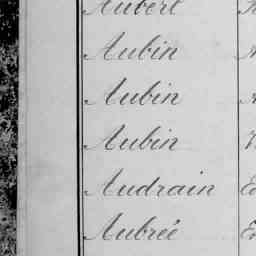 Aubert
Aubin
Aubin
Aubin
Audrain
Aubrée